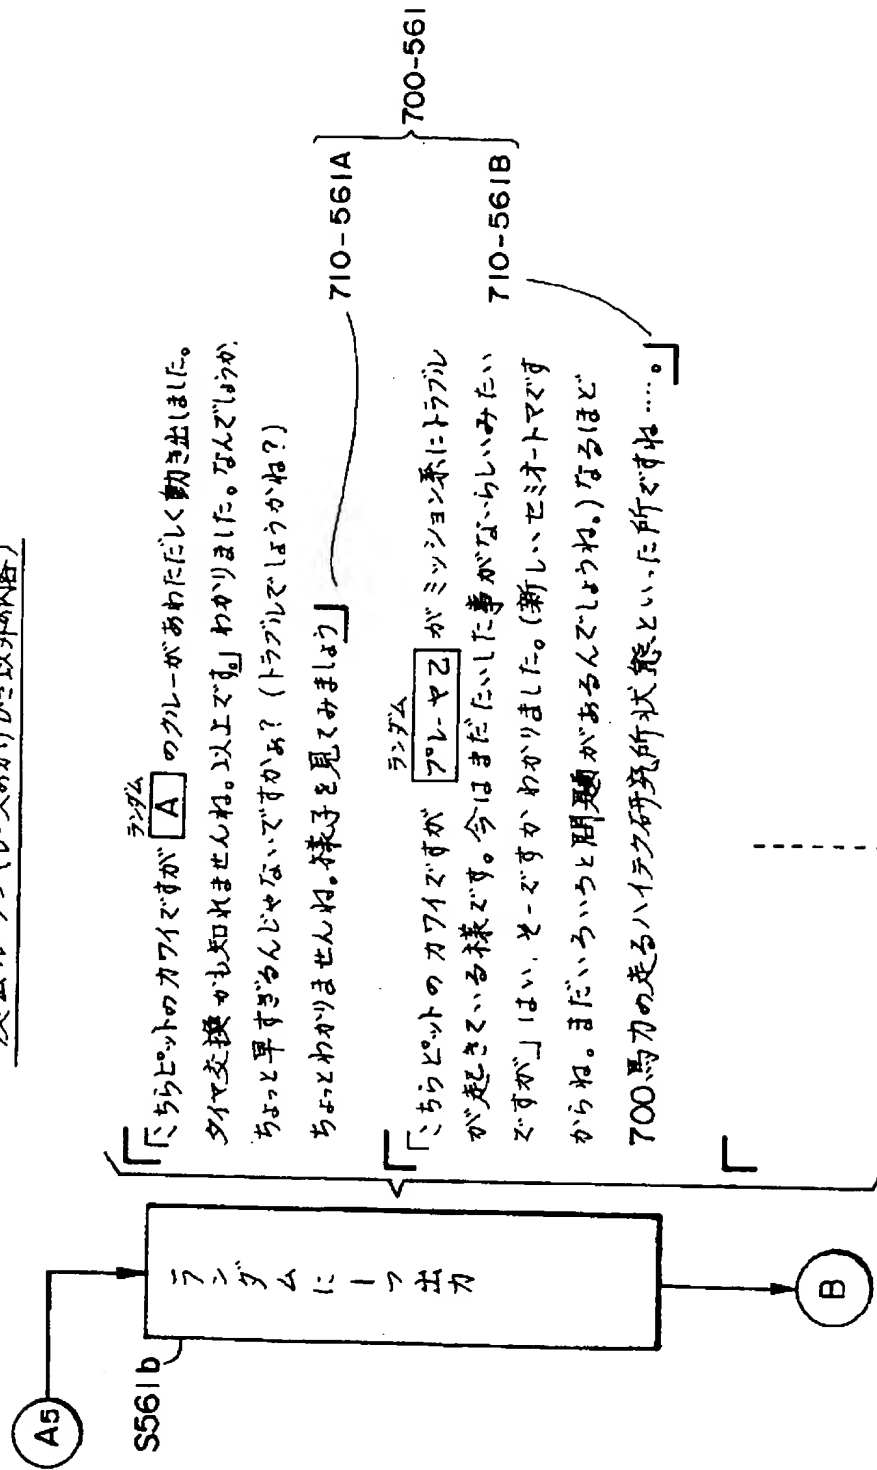 A5
S561b
ランダムに一つ出力
B
ランダム
「こちらピットのカワイですが A のクルーがあわただしく動き出しました。
タイヤ交換かも知れませんね。以上です。」わかりました。なんでしょうか、
ちょっと早すぎるんじゃないですかぁ？（トラブルでしょうかね？）
ちょっとわかりませんね。様子を見てみましょう」
710-561A
ランダム
「こちらピットのカワイですが プレーヤ2 がミッション系にトラブル
が起きている様です。今はまだたいした事がないらしいみたい
ですが」はい、そーですかわかりました。（新しいセミオートマです
からね。まだいろいろと問題があるんでしょうね。）なるほど
700馬力の走るハイテク研究所状態といった所ですね……。」
710-561B
700-561